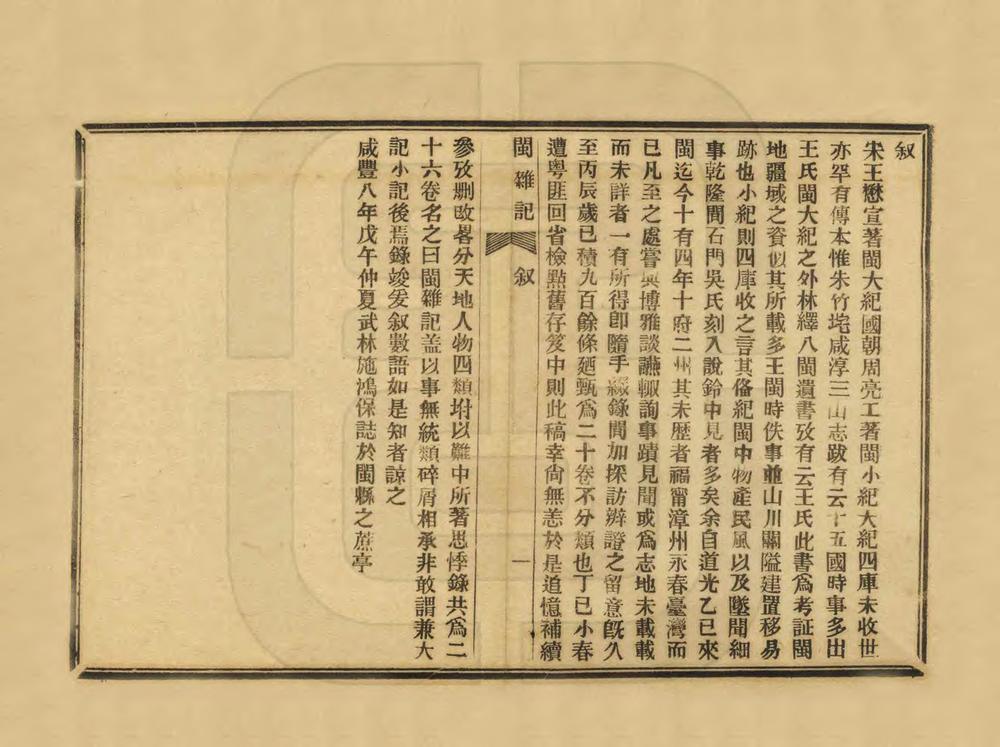 叙
宋王懋宣著閩大紀國朝周亮工著閩小紀大紀四庫未收世
亦罕有傳本惟朱竹垞咸淳三山志跋有云十五國時事多出
王氏閩大紀之外林繹八閩遺書攷有云王氏此書爲考証閩
地疆域之資似其所載多王閩時佚事並山川關隘建置移易
跡也小紀則四庫收之言其俻紀閩中物產民風以及墜聞細
事乾隆間石門吳氏刻入說鈴中見者多矣余自道光乙巳來
閩迄今十有四年十府二州其未歷者福甯漳州永春臺灣而
已凡至之處嘗與博雅談讌輙詢事蹟見聞或爲志地未載載
而未詳者一有所得卽隨手綴錄間加採訪辨證之留意旣久
至丙辰歲已積九百餘條廼甄爲二十卷不分類也丁巳小春
遭粵匪回省檢點舊存笈中則此稿幸尙無恙於是追憶補續
閩雜記 叙 一
參攷刪改畧分天地人物四類坿以難中所著思悸錄共爲二
十六卷名之曰閩雜記盖以事無統類碎屑相承非敢謂兼大
記小記後焉錄竣爰叙數語如是知者諒之
咸豐八年戊午仲夏武林施鴻保誌於閩縣之蔗亭